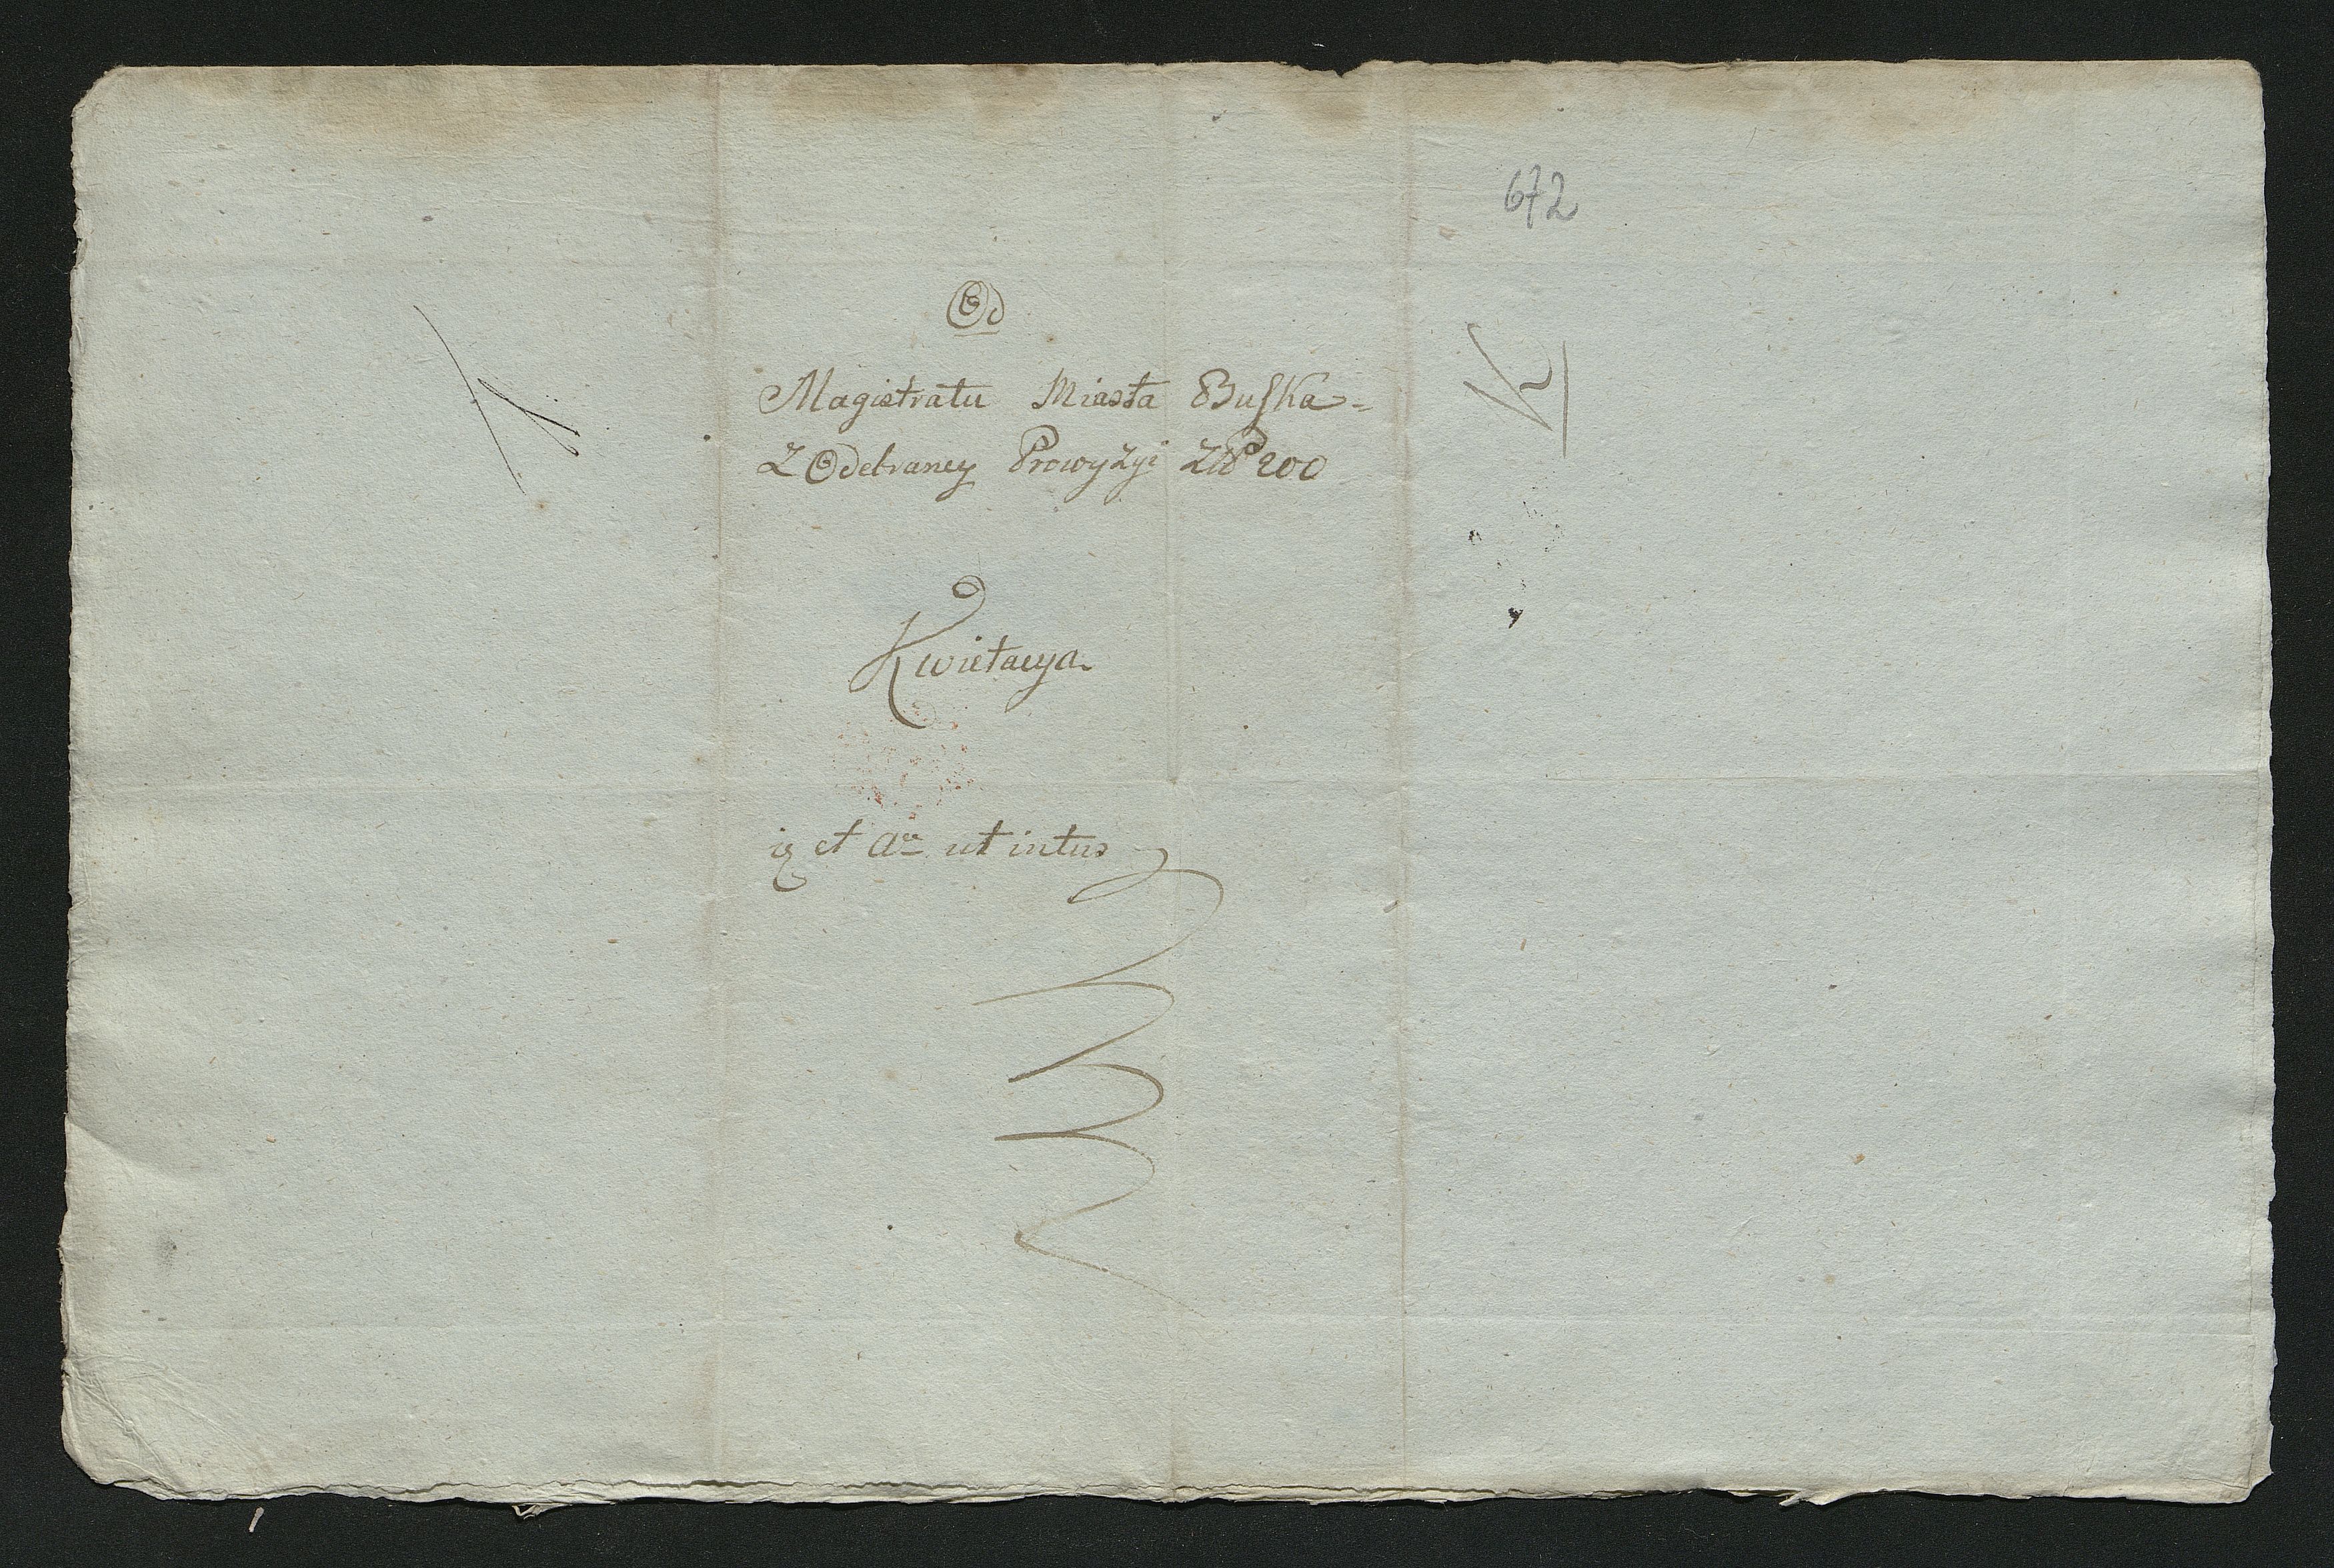 672
Od
Magistratu Miasta Buſka=
Z Odebraney Prowyzyi ZłP 200
Kwietacya
et Ao ut intus